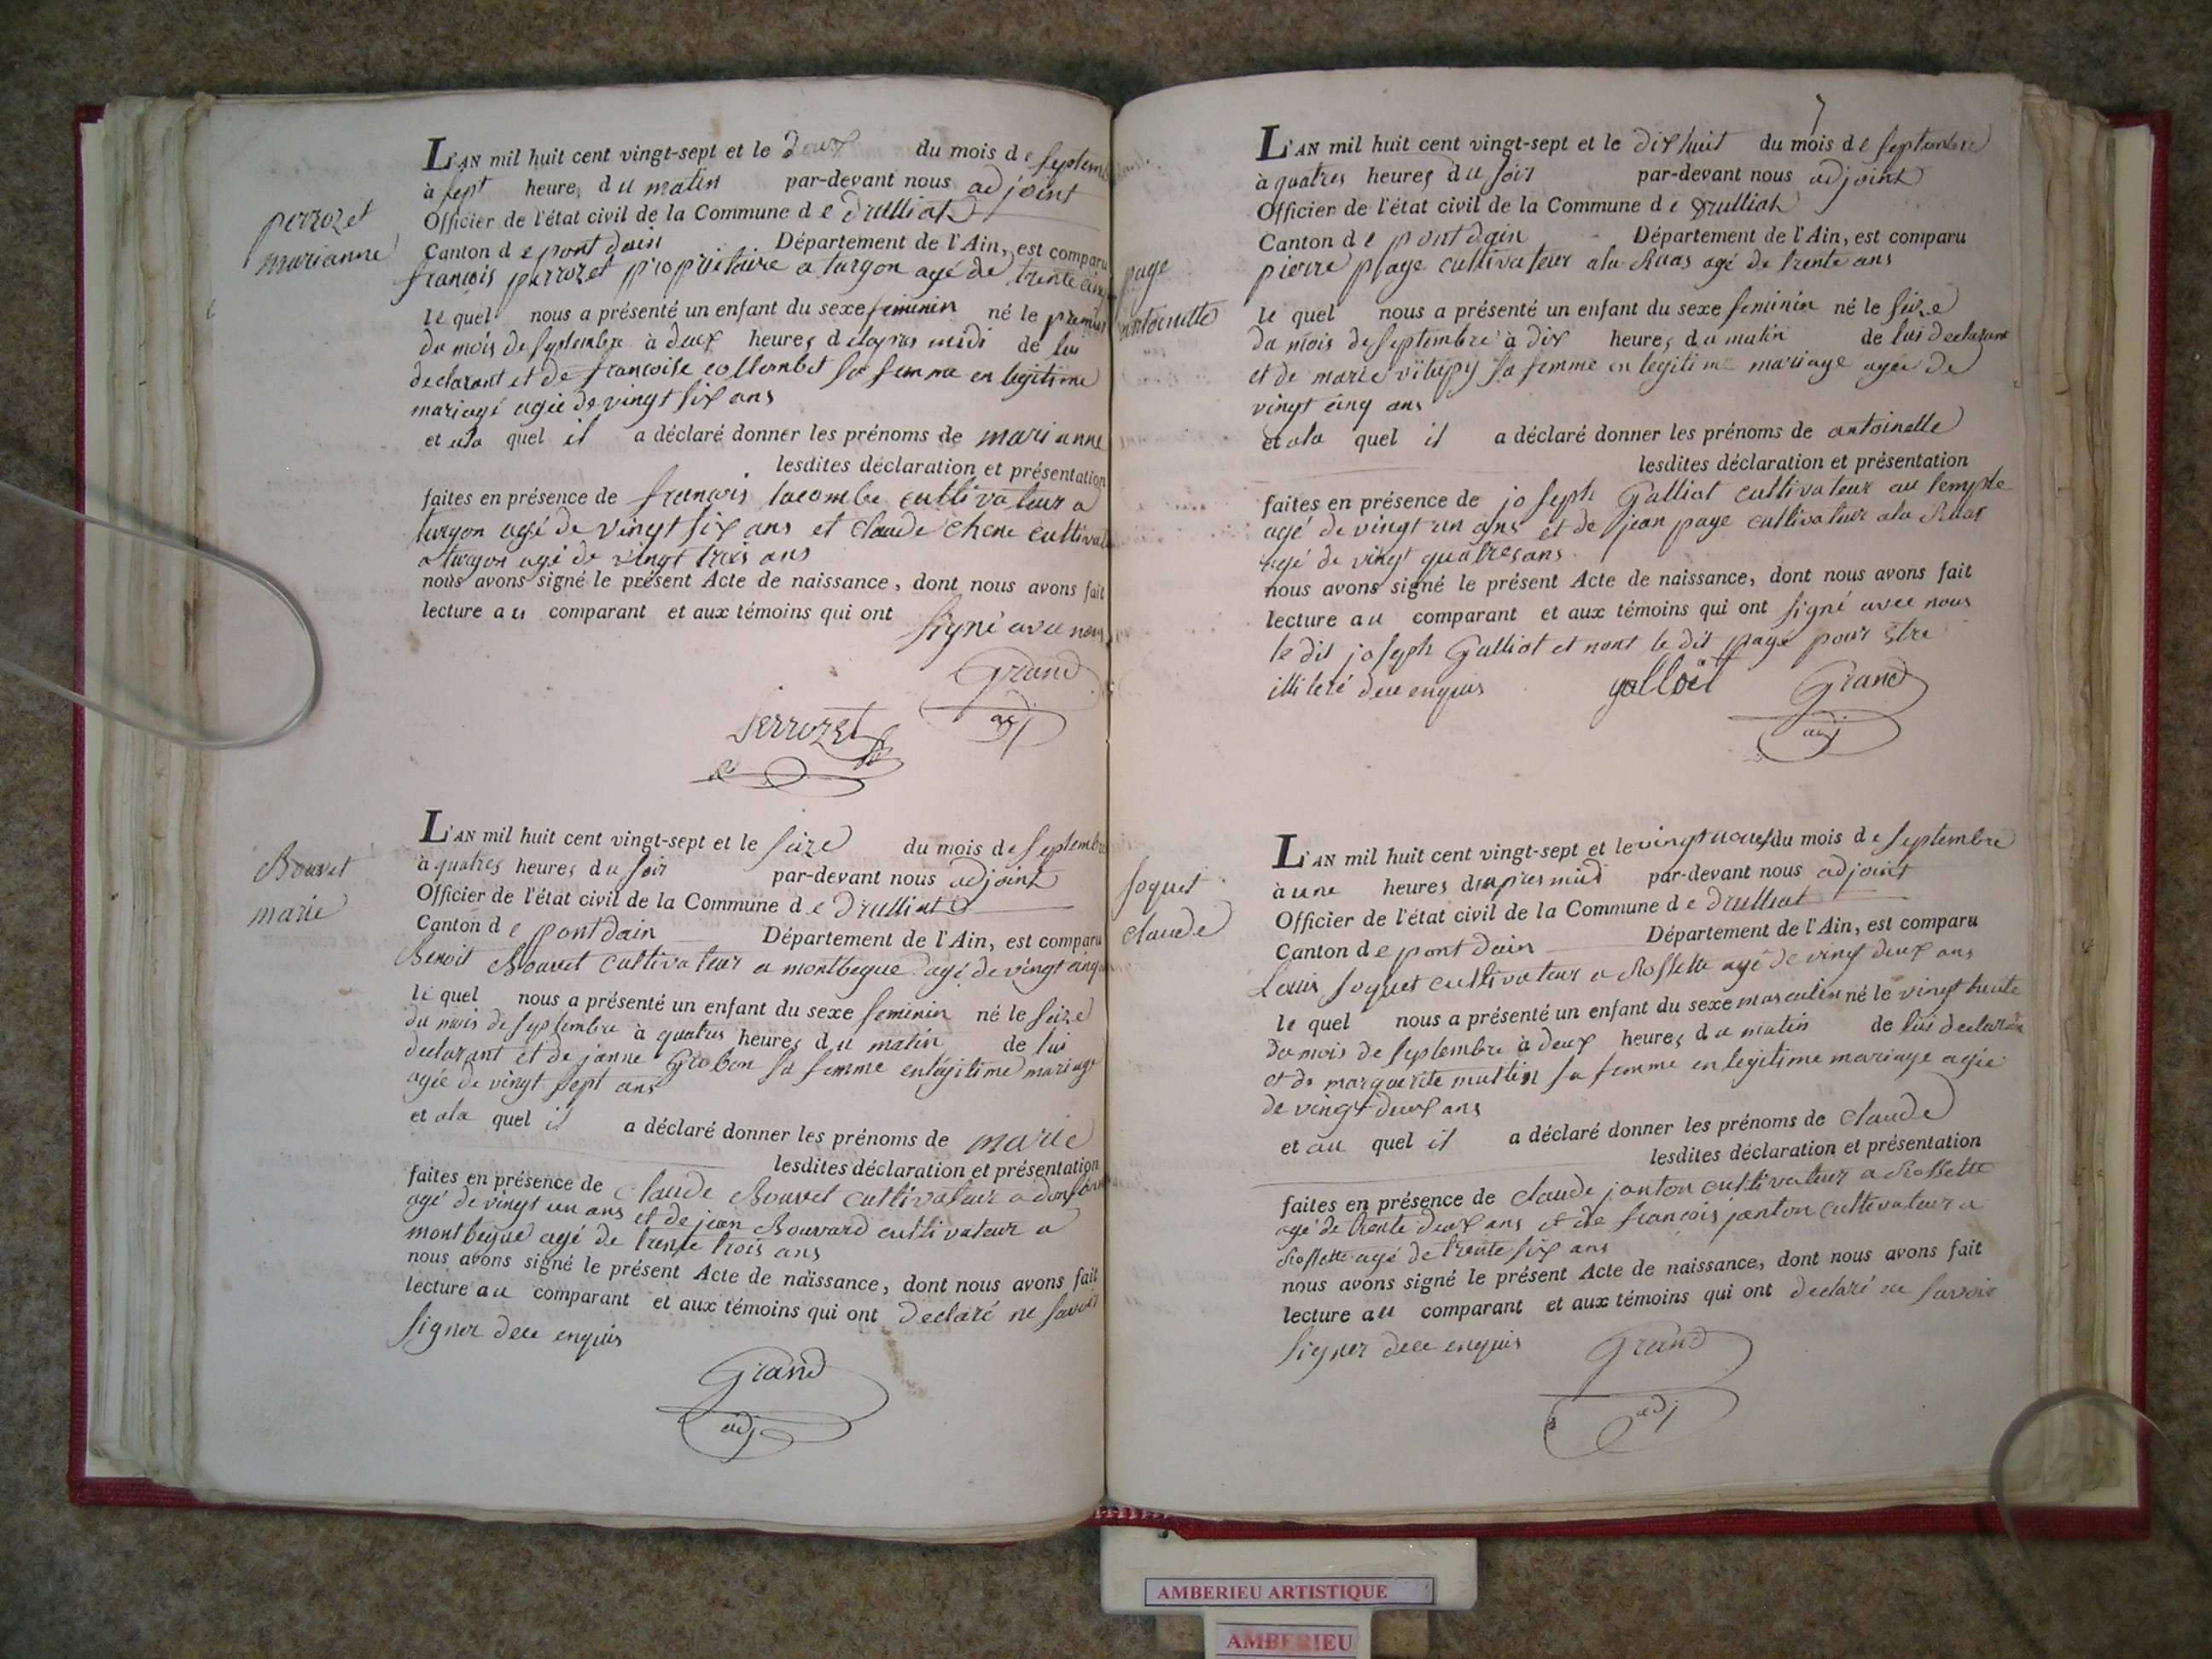 perrozet
marianne
L'AN mil huit cent vingt-sept et le deux du mois de septem
à sept heures du matin par-devant nous adjoint
Officier de l'état civil de la Commune de Drulliat
Canton de pont dain Département de l'Ain, est comparu
francois perrozet propriétaire a turgon agé de trente cinq
le quel nous a présenté un enfant du sexe feminin né le premier
du mois de septembre à deux heures de lapres midi de lui
declarant et de francoise collombet sa femme en legitime
mariage agée de vingt six ans
et ala quel il a déclaré donner les prénoms de marianne
lesdites déclaration et présentation
faites en présence de francois lacombe cultivateur a
turgon agé de vingt six ans et claude chene cultivat
a turgon agé de vingt trois ans
nous avons signé le présent Acte de naissance, dont nous avons fait
lecture au comparant et aux témoins qui ont signé avec nous
Grand
adj
Perrozet
Bouvet
marie
L'AN mil huit cent vingt-sept et le seize du mois de septembre
à quatres heures du soir par-devant nous adjoint
Officier de l'état civil de la Commune de Drulliat
Canton de pont dain Département de l'Ain, est comparu
Benoit Bouvet cultivateur a montbegue agé de vingt cinq
le quel nous a présenté un enfant du sexe feminin né le seize
du mois de septembre à quatres heures du matin de lui
declarant et de janne Grobon sa femme en légitime mariage
agée de vingt sept ans
et ala quel il a déclaré donner les prénoms de marie
lesdites déclaration et présentation
faites en présence de Claude Bouvet cultivateur a
agé de vingt un ans et de jean Bouvard cultivateur a
montbegue agé de trente trois ans
nous avons signé le présent Acte de naissance, dont nous avons fait
lecture au comparant et aux témoins qui ont declaré ne savoir
signer dece enquis
Grand
adj
page
antoinette
L'AN mil huit cent vingt-sept et le dix huit du mois de septembre
à quatres heures du soir par-devant nous adjoint
Officier de l'état civil de la Commune de Drulliat
Canton de pont dain Département de l'Ain, est comparu
pierre page cultivateur ala Ruas agé de trente ans
le quel nous a présenté un enfant du sexe feminin né le seize
du mois de septembre à dix heures du matin de lui declarant
et de marie sa femme en legitime mariage agée de
vingt cinq ans
et ala quel il a déclaré donner les prénoms de antoinette
lesdites déclaration et présentation
faites en présence de joseph Galliot cultivateur au temple
agé de vingt un ans et de jean page cultivateur ala Ruas
agé de vingt quatres ans
nous avons signé le présent Acte de naissance, dont nous avons fait
lecture au comparant et aux témoins qui ont signé avec nous
le dit joseph Galliot et nont le dit page pour être
illiteré dece enquis galloit Grand
adj
soquet
claude
L'AN mil huit cent vingt-sept et le vingt neuf du mois de septembre
à une heures dapres midi par-devant nous adjoint
Officier de l'état civil de la Commune de Drulliat
Canton de pont dain Département de l'Ain, est comparu
Louis soquet cultivateur a Rossette agé de vingt deux ans
le quel nous a présenté un enfant du sexe masculin né le vingt huite
du mois de septembre à deux heures du matin de lui declaran
et de marguerite muttin sa femme en legitime mariage agée
de vingt deux ans
et au quel il a déclaré donner les prénoms de claude
lesdites déclaration et présentation
faites en présence de claude janton cultivateur a Rossette
agé de trente deux ans et de francois janton cultivateur a
Rossette agé de trente six ans
nous avons signé le présent Acte de naissance, dont nous avons fait
lecture au comparant et aux témoins qui ont declaré ne savoir
signer dece enquis Grand
adj
AMBERIEU ARTISTIQUE
AMBERIEU